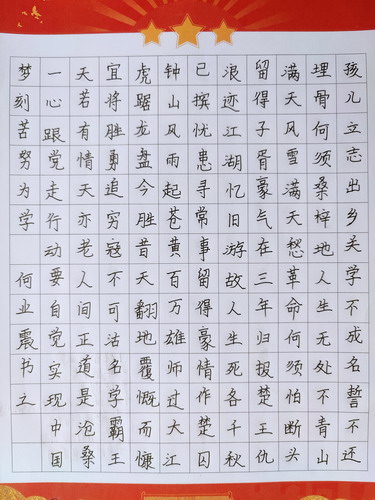 孩儿立志出乡关学不成名誓不还
埋骨何须桑梓地人生无处不青山
满天风雪满天愁革命何须怕断头
留得子胥豪气在三年归报楚王仇
浪迹江湖忆旧游故人生死各千秋
已摈忧患寻常事留得豪情作楚囚
钟山风雨起苍黄百万雄师过大江
虎踞龙盘今胜昔天翻地覆慨而慷
宜将胜勇追穷寇不可沽名学霸王
天若有情天亦老人间正道是沧桑
一心跟党走行动要自觉实现中国
梦刻苦努为学 何业震书之